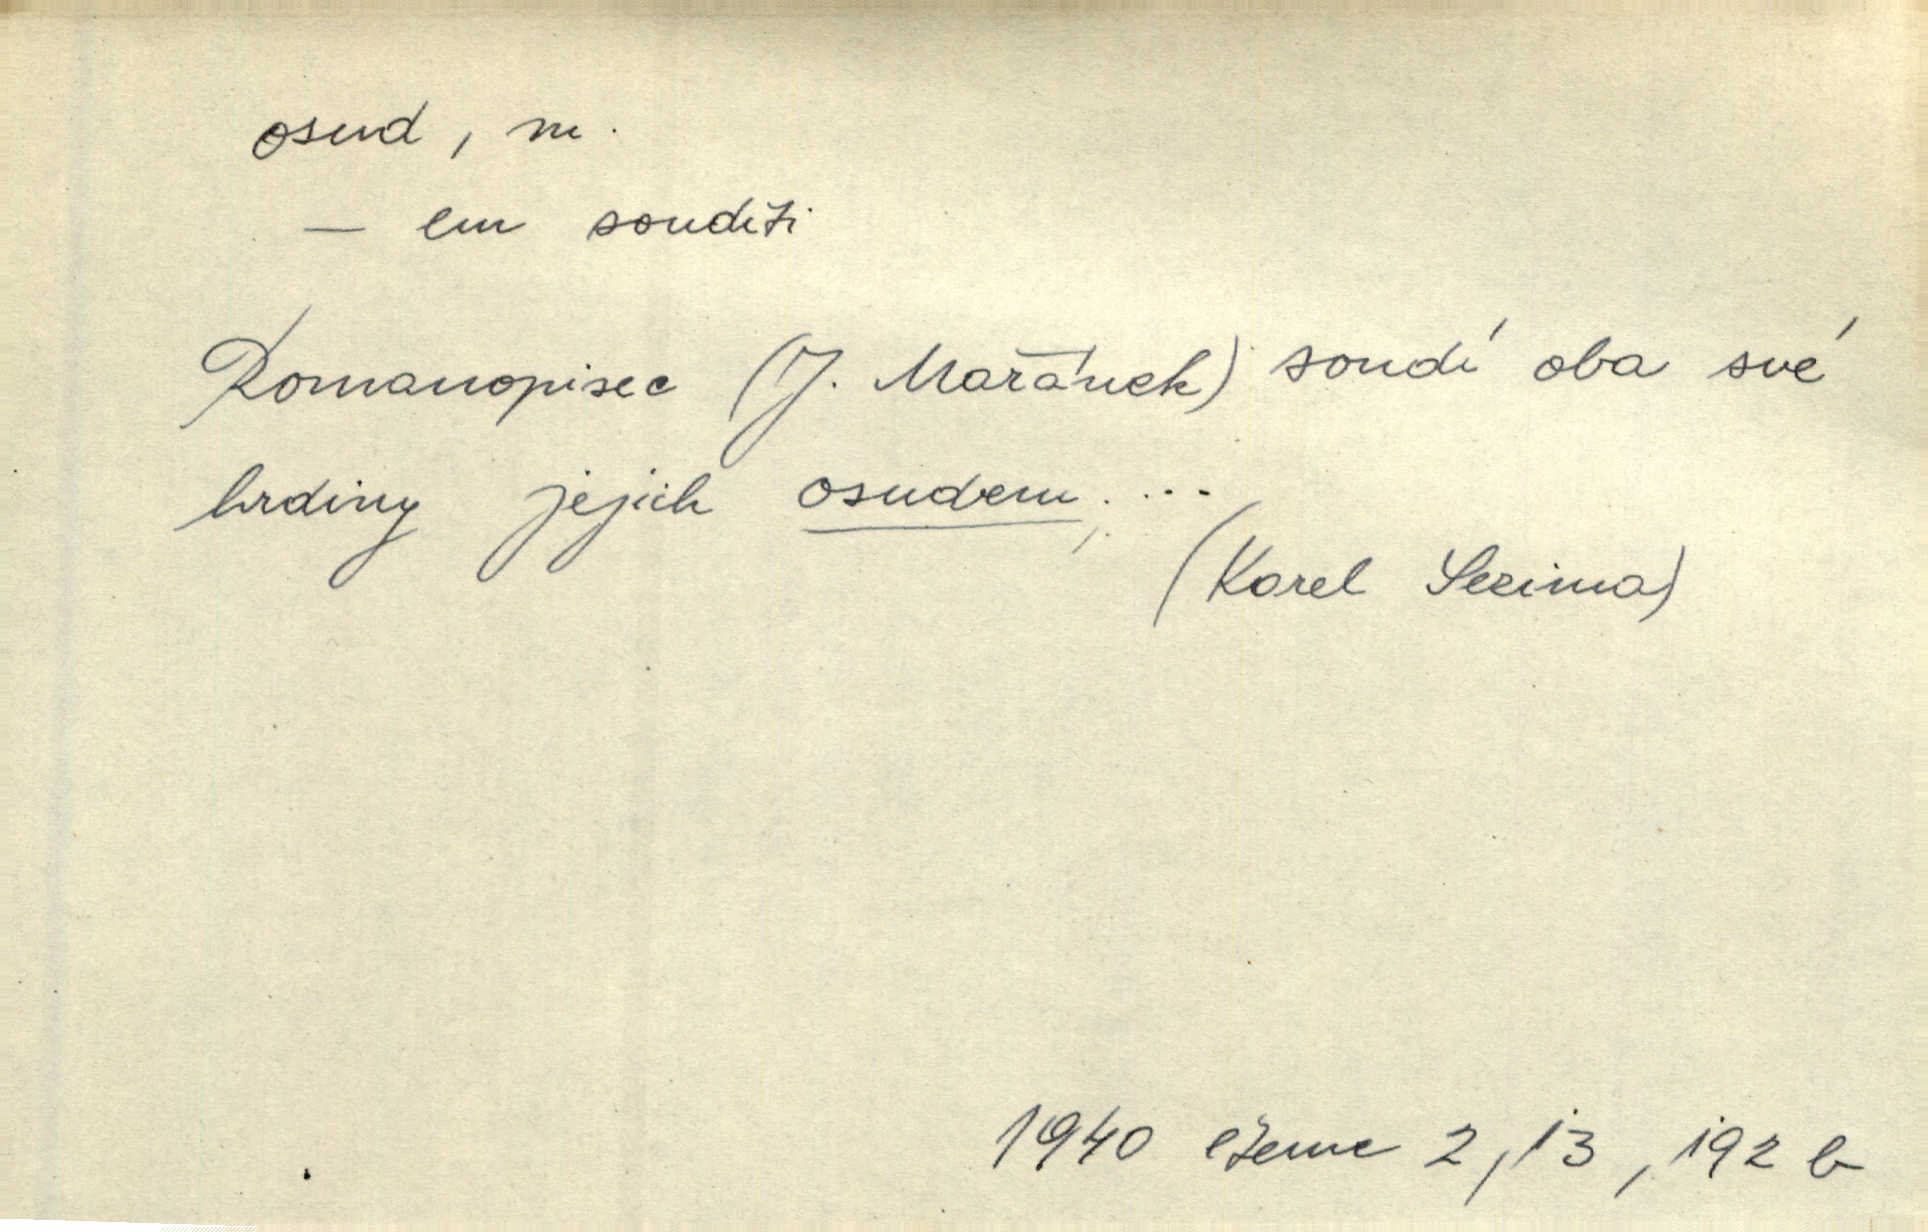 osud, m.
— em souditi
Romanopisec (J. Mařánek) soudí oba své
hrdiny jejich osudem; ...
(Karel Sezima)
1940 čteme 2, 13, 192 b